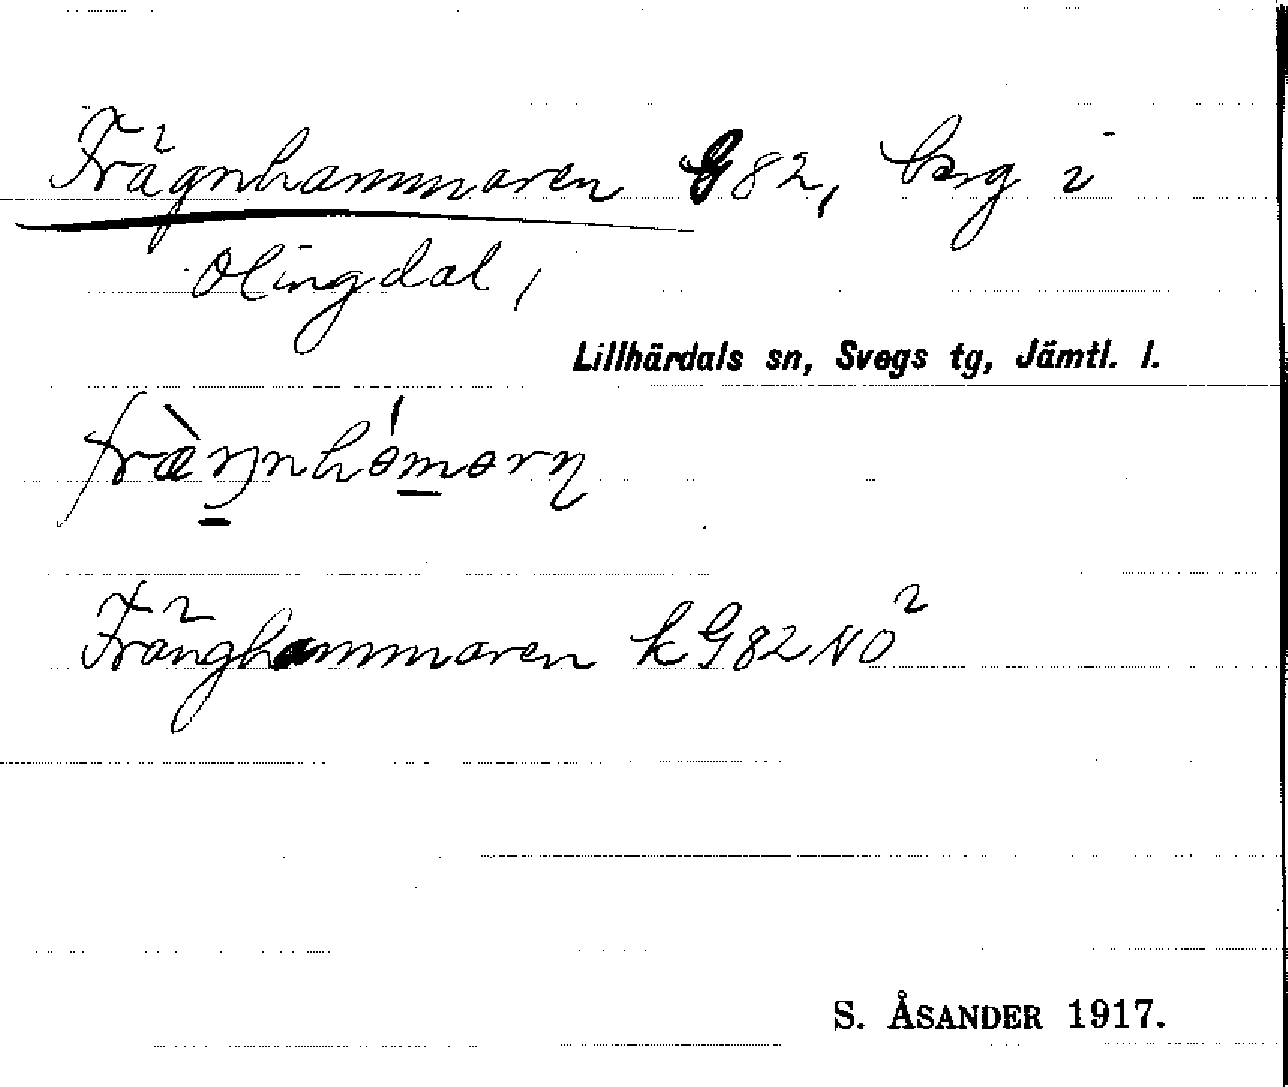 Frägnhammaren G82, berg i
Olingdal,
Lillhärdals sn, Svegs tg, Jämtl. l.
fræ̀ŋnhámarn
Fränghammaren k G82 NO²
S. ÅSANDER 1917.